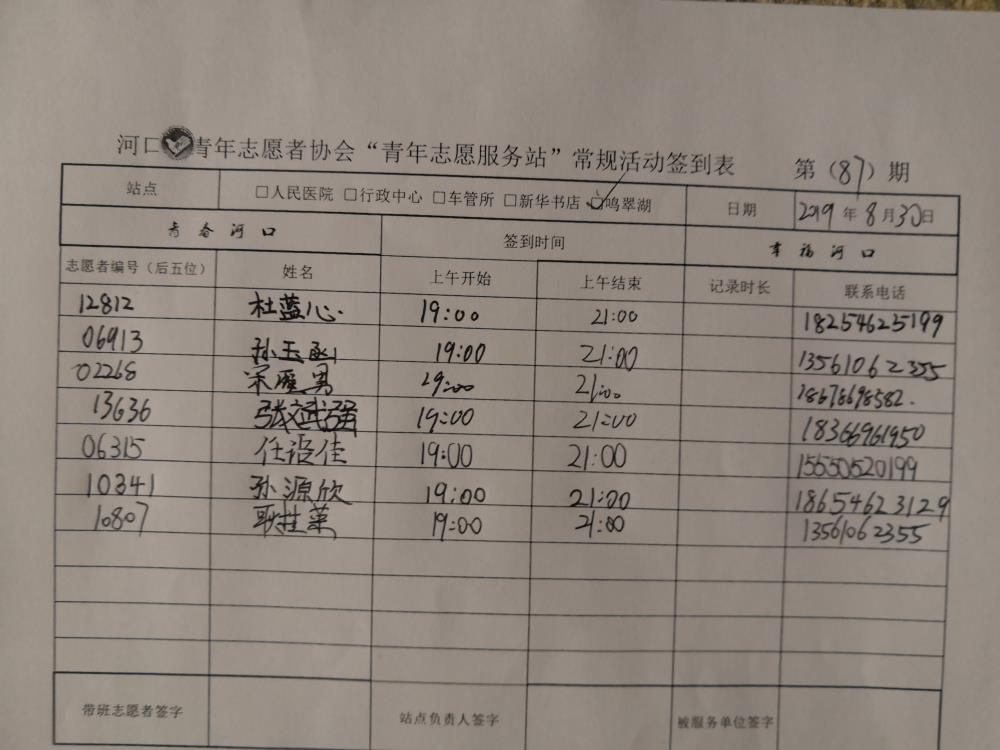 河口青年志愿者协会“青年志愿服务站”常规活动签到表 第（87）期
站点 □人民医院 □行政中心 □车管所 □新华书店 ☑鸣翠湖 日期 2019年8月30日
青春河口 签到时间 幸福河口
志愿者编号（后五位） 姓名 上午开始 上午结束 记录时长 联系电话
12812 杜蓝心 19:00 21:00 18254625199
06913 孙玉 19:00 21:00 13561062355
02268 宋 男 19:00 21:00 18678698582
13636 张斌强 19:00 21:00 18366961950
06315 任语佳 19:00 21:00 15550520199
10341 孙源欣 19:00 21:00 18654623129
10807 耿 19:00 21:00 13561062355
带班志愿者签字 站点负责人签字 被服务单位签字